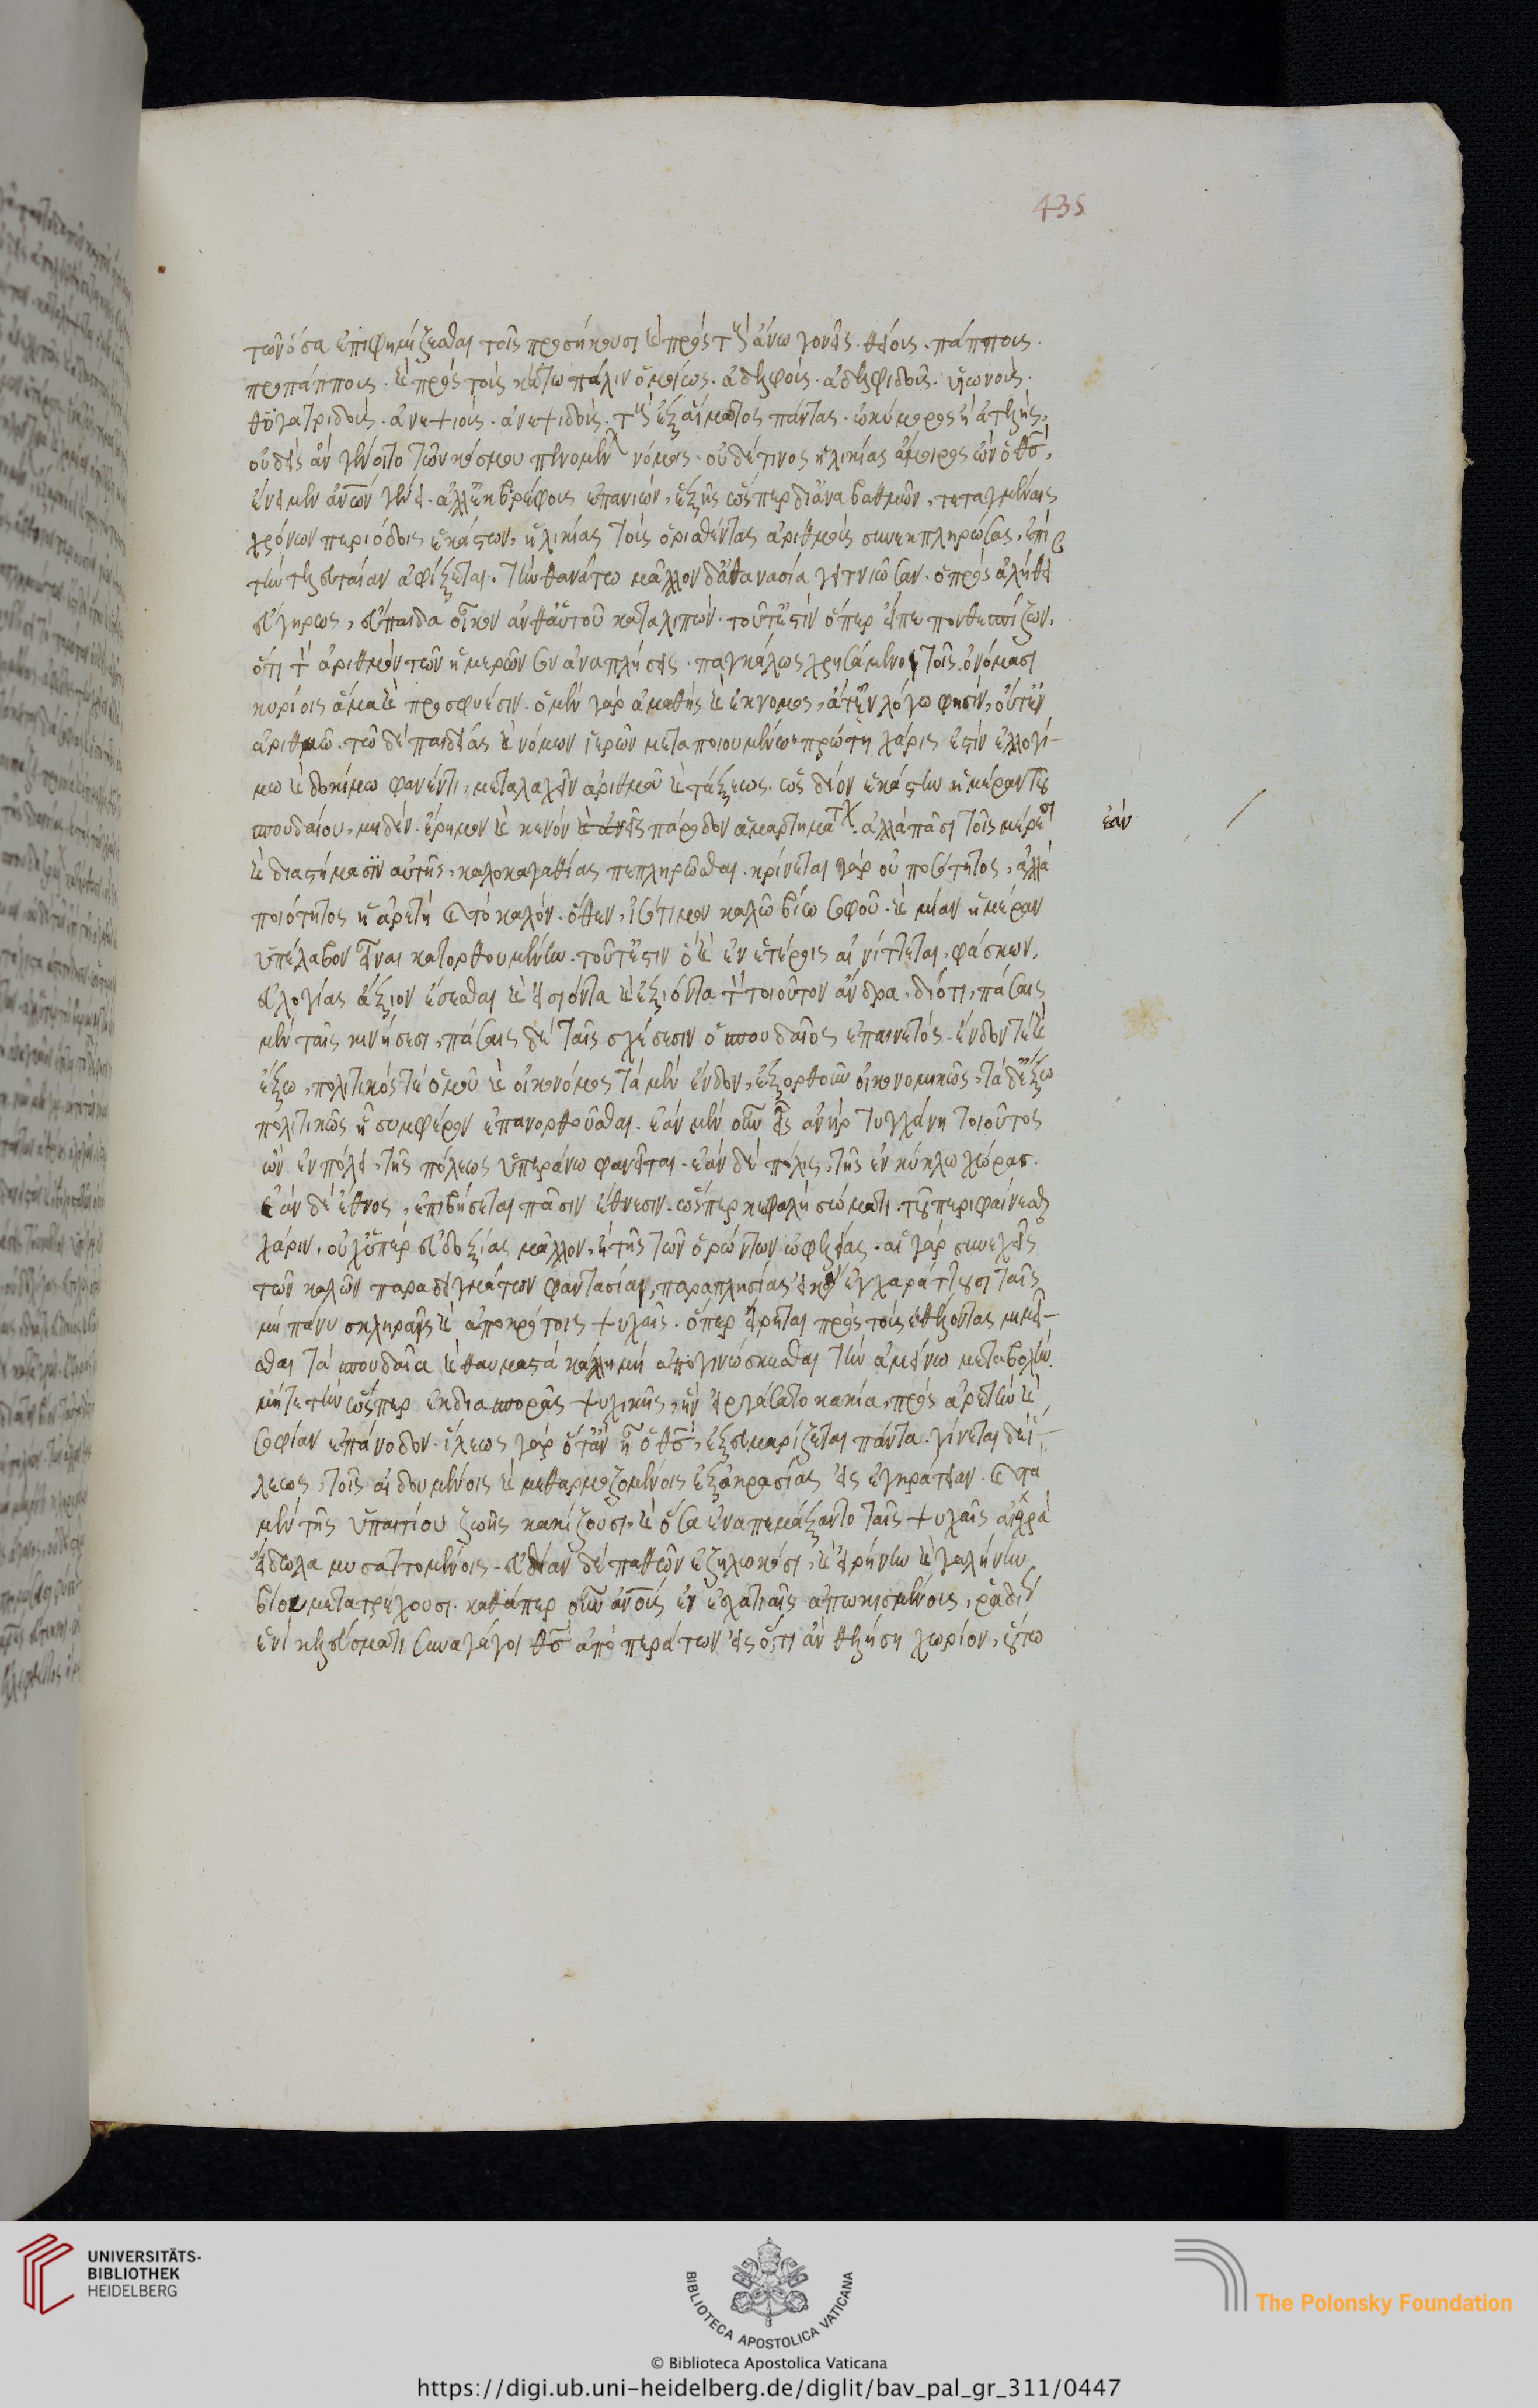 435
τῶν ὅσα ἐπιφημίζεσθαι τοῖς προσήκουσι καὶ πρὸς τοὺς ἄνω γονεῖς. θείοις. πάπποις.
προπάπποις. καὶ πρὸς τοὺς κάτω πάλιν ὁμοίως. ἀδελφοῖς. ἀδελφιδοῖς. υἱωνοῖς.
θυγατριδοῖς. ἀνεψιοῖς. ἀνεψιδοῖς. τοὺς ἐξ αἵματος πάντας. ὠκύμορος ἢ ἀτελὴς,
οὐδεὶς ἂν γένοιτο τῶν κόσμου νόμοις. οὐδέ τινος ἡλικίας ἄμοιρος ὧν ὁ θς,
ἔνειμεν ἀνων γένει. ἀλλ' ἐκ βρέφους ἐπανιὼν, ἑξῆς ὥσπερ δι' ἀναβαθμῶν, τεταγμέναις
χρόνων περιόδοις ἑκάστων, ἡλικίας τοὺς ὁρισθέντας ἀριθμοὺς συνεκπληρώσας, ἐπὶ
τὴν τελευταίαν ἀφίξεται. τὴν θανάτω μᾶλλον δ' ἀθανασία γειτνιῶσαν. ὁ πρὸς ἀλήθει
εὔγηρως, εὔπαιδα οἶκον ἀνθ' αὑτοῦ καταλιπών. τοῦτ' ἐστὶν ὅπερ εἶπέ που θεσπίζων,
ὅτι τὸν ἀριθμὸν τῶν ἡμερῶν σου ἀναπλήσεις. παγκάλως χρησάμενος τοῖς ὀνόμασι
κυρίοις ἅμα καὶ προσφυέσιν. ὁ μὲν γὰρ ἀμαθὴς καὶ ἔκνομος, οὔτ' ἐν λόγω φησὶν, οὔτ' ἐν
ἀριθμῶ. τῶ δὲ παιδείας καὶ νόμων ἱερῶν μεταποιουμένω, πρώτη χάρις ἐστὶν ἐλλογί-
μω καὶ δοκίμω φανέντι, μεταλαχεῖν ἀριθμοῦ καὶ τάξεως. ὡς δέον ἑκάστην ἡμέραν τοῦ
σπουδαίου, μηδὲν. ἔρημον καὶ κενὸν πάροδον ἁμαρτημάτων. ἀλλὰ πᾶσι τοῖς μέρεσι
ἐὰν
καὶ διαστήμασιν αὐτῆς, καλοκαγαθίας πεπληρῶσθαι. κρίνεται γὰρ οὐ ποσότητος, ἀλλὰ
ποιότητος ἡ ἀρετὴ καὶ τὸ καλόν. ὅθεν, ἰσότιμον καλῶ βίω σοφοῦ. καὶ μίαν ἡμέραν
ὑπέλαβον εἶναι κατορθουμένην. τοῦτ' ἔστιν ὃ καὶ ἐν ἑτέροις αἰνίττεται, φάσκων,
εὐλογίας ἄξιον ἔσεσθαι καὶ εἰσιόντα καὶ ἐξιόντα τὸν τοιοῦτον ἄνδρα, διότι, πάσαις
μὲν ταῖς κινήσεσι, πάσαις δὲ ταῖς σχέσεσιν ὁ σπουδαῖος ἐπαινετός. ἔνδον τὲ καὶ
ἔξω, πολιτικός τὲ ὁμοῦ καὶ οἰκονόμος τὰ μὲν ἔνδον, ἐξορθοῦν οἰκονομικῶς, τὰ δ' ἔξω
πολιτικῶς ἢ συμφέρον ἐπανορθοῦσθαι. ἐὰν μὲν οὖν εἷς ἀνὴρ τυγχάνη τοιοῦτος
ὢν ἐν πόλει, τῆς πόλεως ὑπεράνω φανεῖται. ἐὰν δὲ πόλις, τῆς ἐν κύκλω χώρας.
ἐὰν δὲ ἔθνος, ἐπιβήσεται πᾶσιν ἔθνεσιν. ὥσπερ κεφαλὴ σώματι, τοῦ περιφαίνεσθαι
χάριν, οὐχ ὑπὲρ εὐδοξίας μᾶλλον, ἢ τῆς τῶν ὁρώντων ὠφελείας. αἱ γὰρ συνεχεῖς
τῶν καλῶν παραδειγμάτων φαντασίαι, παραπλησίας εἰκόνας ἐγχαράττουσι ταῖς
μὴ πάνυ σκληραῖς καὶ ἀποκρότοις ψυχαῖς. ὅπερ εἴρηται πρὸς τοὺς ἐθέλοντας μιμεῖ-
σθαι τὰ σπουδαῖα καὶ θαυμαστὰ κάλλη μὴ ἀπογινώσκεσθαι τὴν ἀμείνω μεταβολὴν.
μήτε τὴν ὥσπερ ἐκ διασπορᾶς ψυχικῆς, ἣν εἰργάσατο κακία, πρὸς ἀρετὴν καὶ
σοφίαν ἐπάνοδον. ἵλεως γὰρ ὅταν ἦ ὁ θς, ἐξευμαρίζεται πάντα. γίνεται δὲ ἵ-
λεως, τοῖς αἰδουμένοις καὶ μεθαρμοζομένοις ἐξ ἀκρασίας εἰς ἐγκράτειαν. καὶ τὰ
μὲν τῆς ὑπαιτίου ζωῆς κακίζουσι, καὶ ὅσα ἐναπεμάξαντο ταῖς ψυχαῖς αἰσχρὰ
εἴδωλα μυσαττομένοις. εὐδίαν δὲ παθῶν ἐζηλωκόσι, καὶ εἰρήνην καὶ γαλήνην
βίου μετατρέχουσι. καθάπερ οὖν ἀνους ἐν ἐσχατιαῖς ἀπωκισμένους, ῥαδίως
ἑνὶ κελεύσματι συναγάγοι θς ἀπὸ περάτων εἰς ὅτι ἂν θελήση χωρίον, οὕτω
UNIVERSITÄTS-
BIBLIOTHEK
HEIDELBERG
BIBLIOTECA APOSTOLICA VATICANA
The Polonsky Foundation
© Biblioteca Apostolica Vaticana
https://digi.ub.uni-heidelberg.de/diglit/bav_pal_gr_311/0447